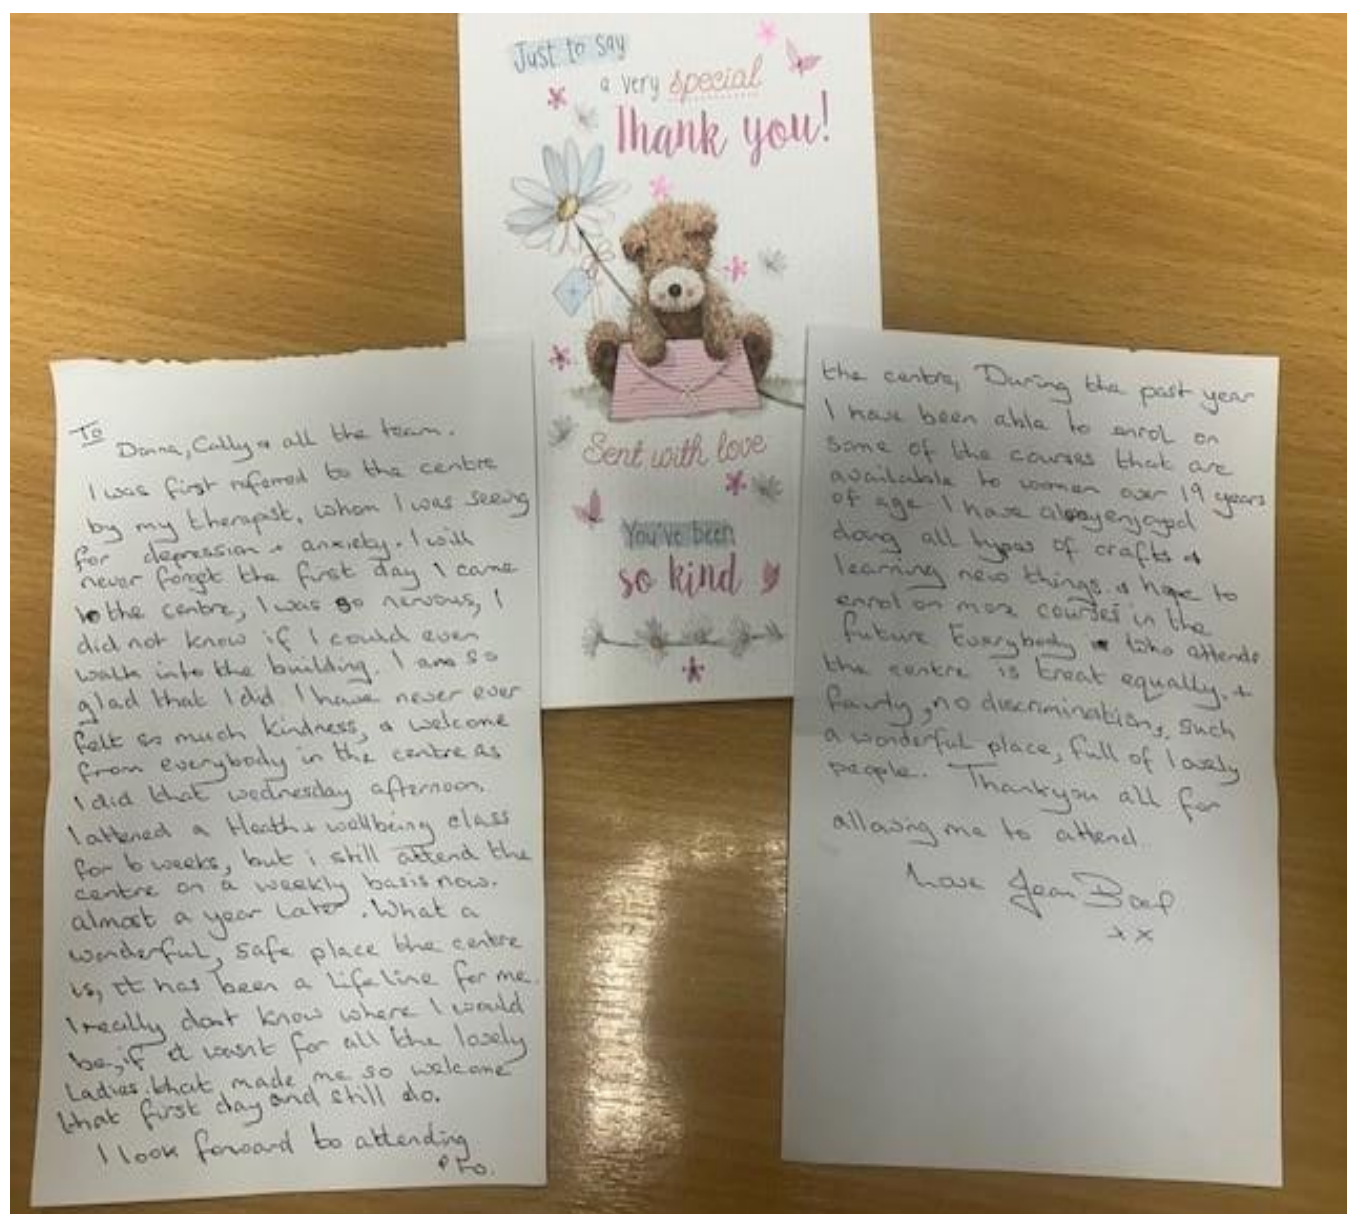 Just to say
a very special
Thank you!
Sent with love
You've been
so kind
To
Donna, Cally & all the team.
I was first referred to the centre
by my therapist, whom I was seeing
for depression + anxiety. I will
never forget the first day I came
to the centre, I was so nervous, I
did not know if I could even
walk into the building. I am so
glad that I did. I have never ever
felt so much kindness, & welcome
from everybody in the centre as
I did that wednesday afternoon.
I attened a Heath + wellbeing class
for 6 weeks, but i still attend the
centre on a weekly basis now.
almost a year later. What a
wonderful, safe place the centre
is, it has been a lifeline for me.
I really dont know where I would
be, if it wasnt for all the lovely
Ladies that made me so welcome
that first day and still do.
I look forward to attending
PTO.
the centre, During the past year
I have been able to enrol on
some of the courses that are
available to women over 19 years
of age. I have enjoyed
doing all types of crafts &
learning new things. & hope to
enrol on more courses in the
future Everybody who attends
the centre is treat equally, +
fairly, no discrimination, such
a wonderful place, full of lovely
people. Thankyou all for
allowing me to attend.
Love Jean
xx